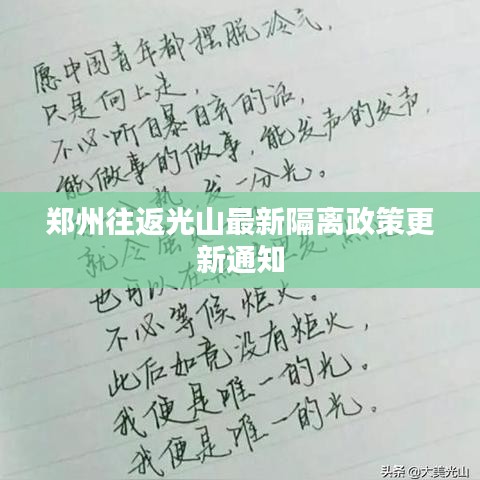 愿中国青年都摆脱冷气，
只是向上走，
不必听自暴自弃的话，
能做事的做事，能发声的发声，
热 发一分光。
郑州往返光山最新隔离政策更
新通知
就令萤火
也可以在
不必等候炬火。
此后如竟没有炬火，
我便是唯一的光。
我便是唯一的光。
头条 @大美光山